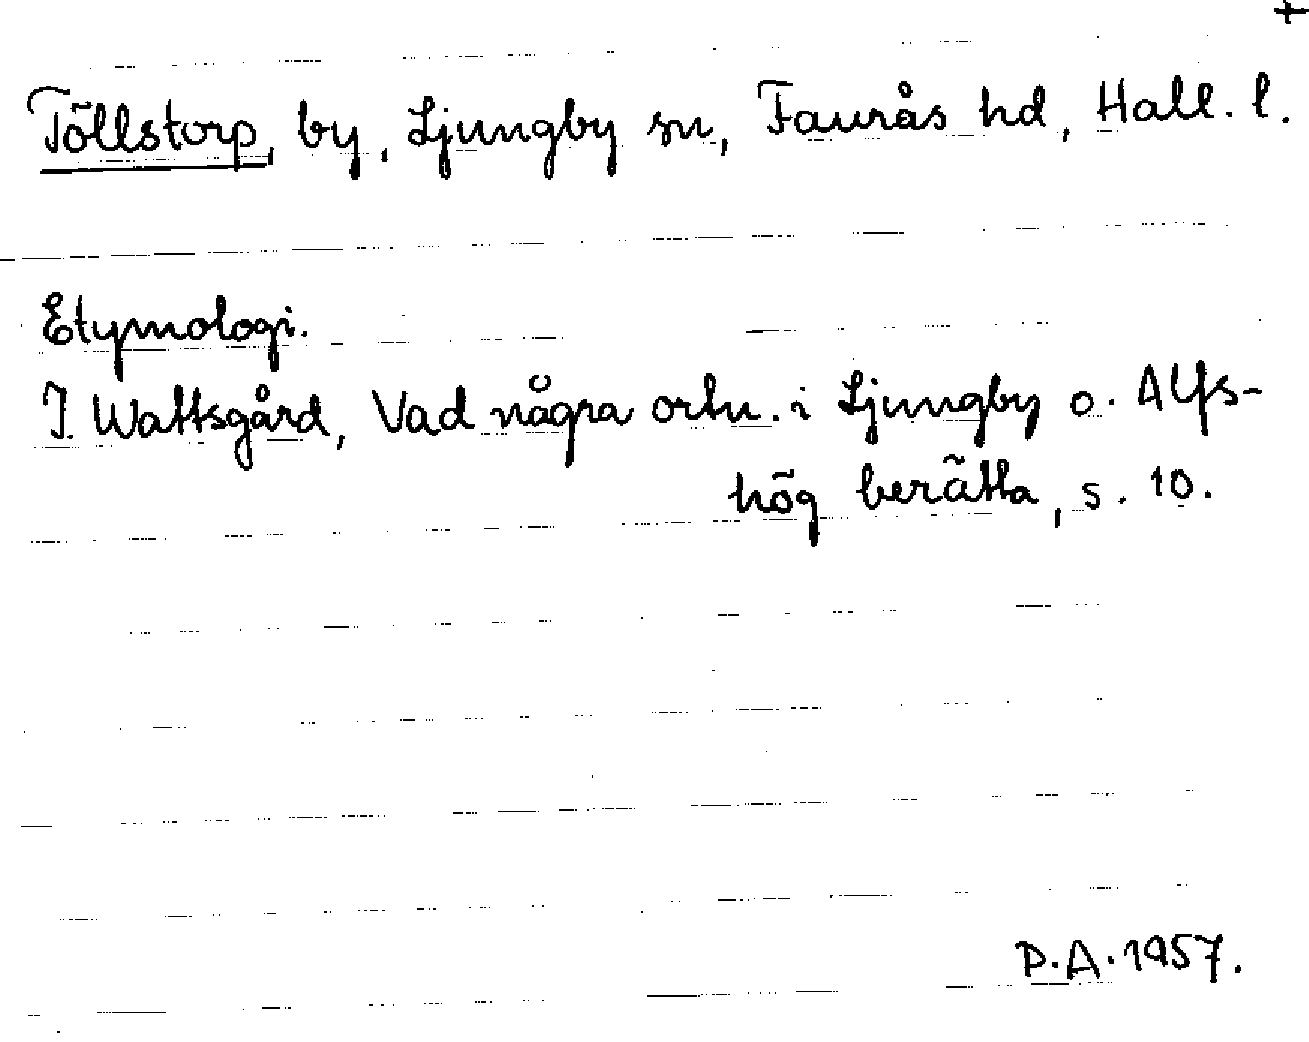 +
Töllstorp, by, Ljungby sn, Faurås hd, Hall. l.
Etymologi.
J. Wattsgård, Vad några ortn. i Ljungby o. Alfs-
hög berätta, s. 10.
P.A. 1957.